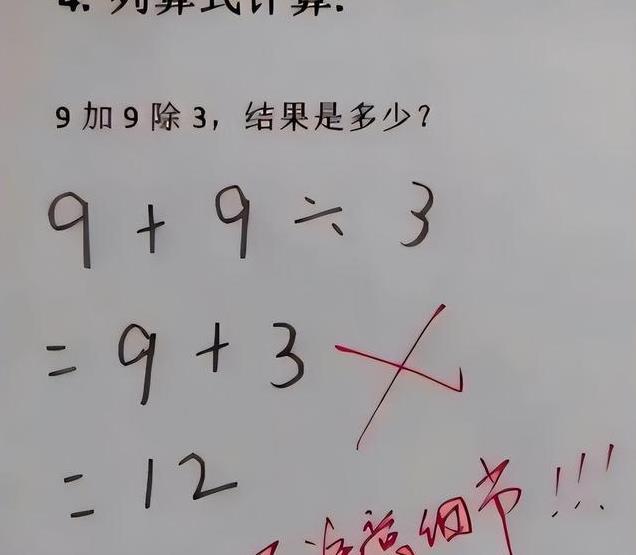 4. 列算式计算.
9 加 9 除 3，结果是多少？
9 + 9 ÷ 3
= 9 + 3
= 12
细节!!!